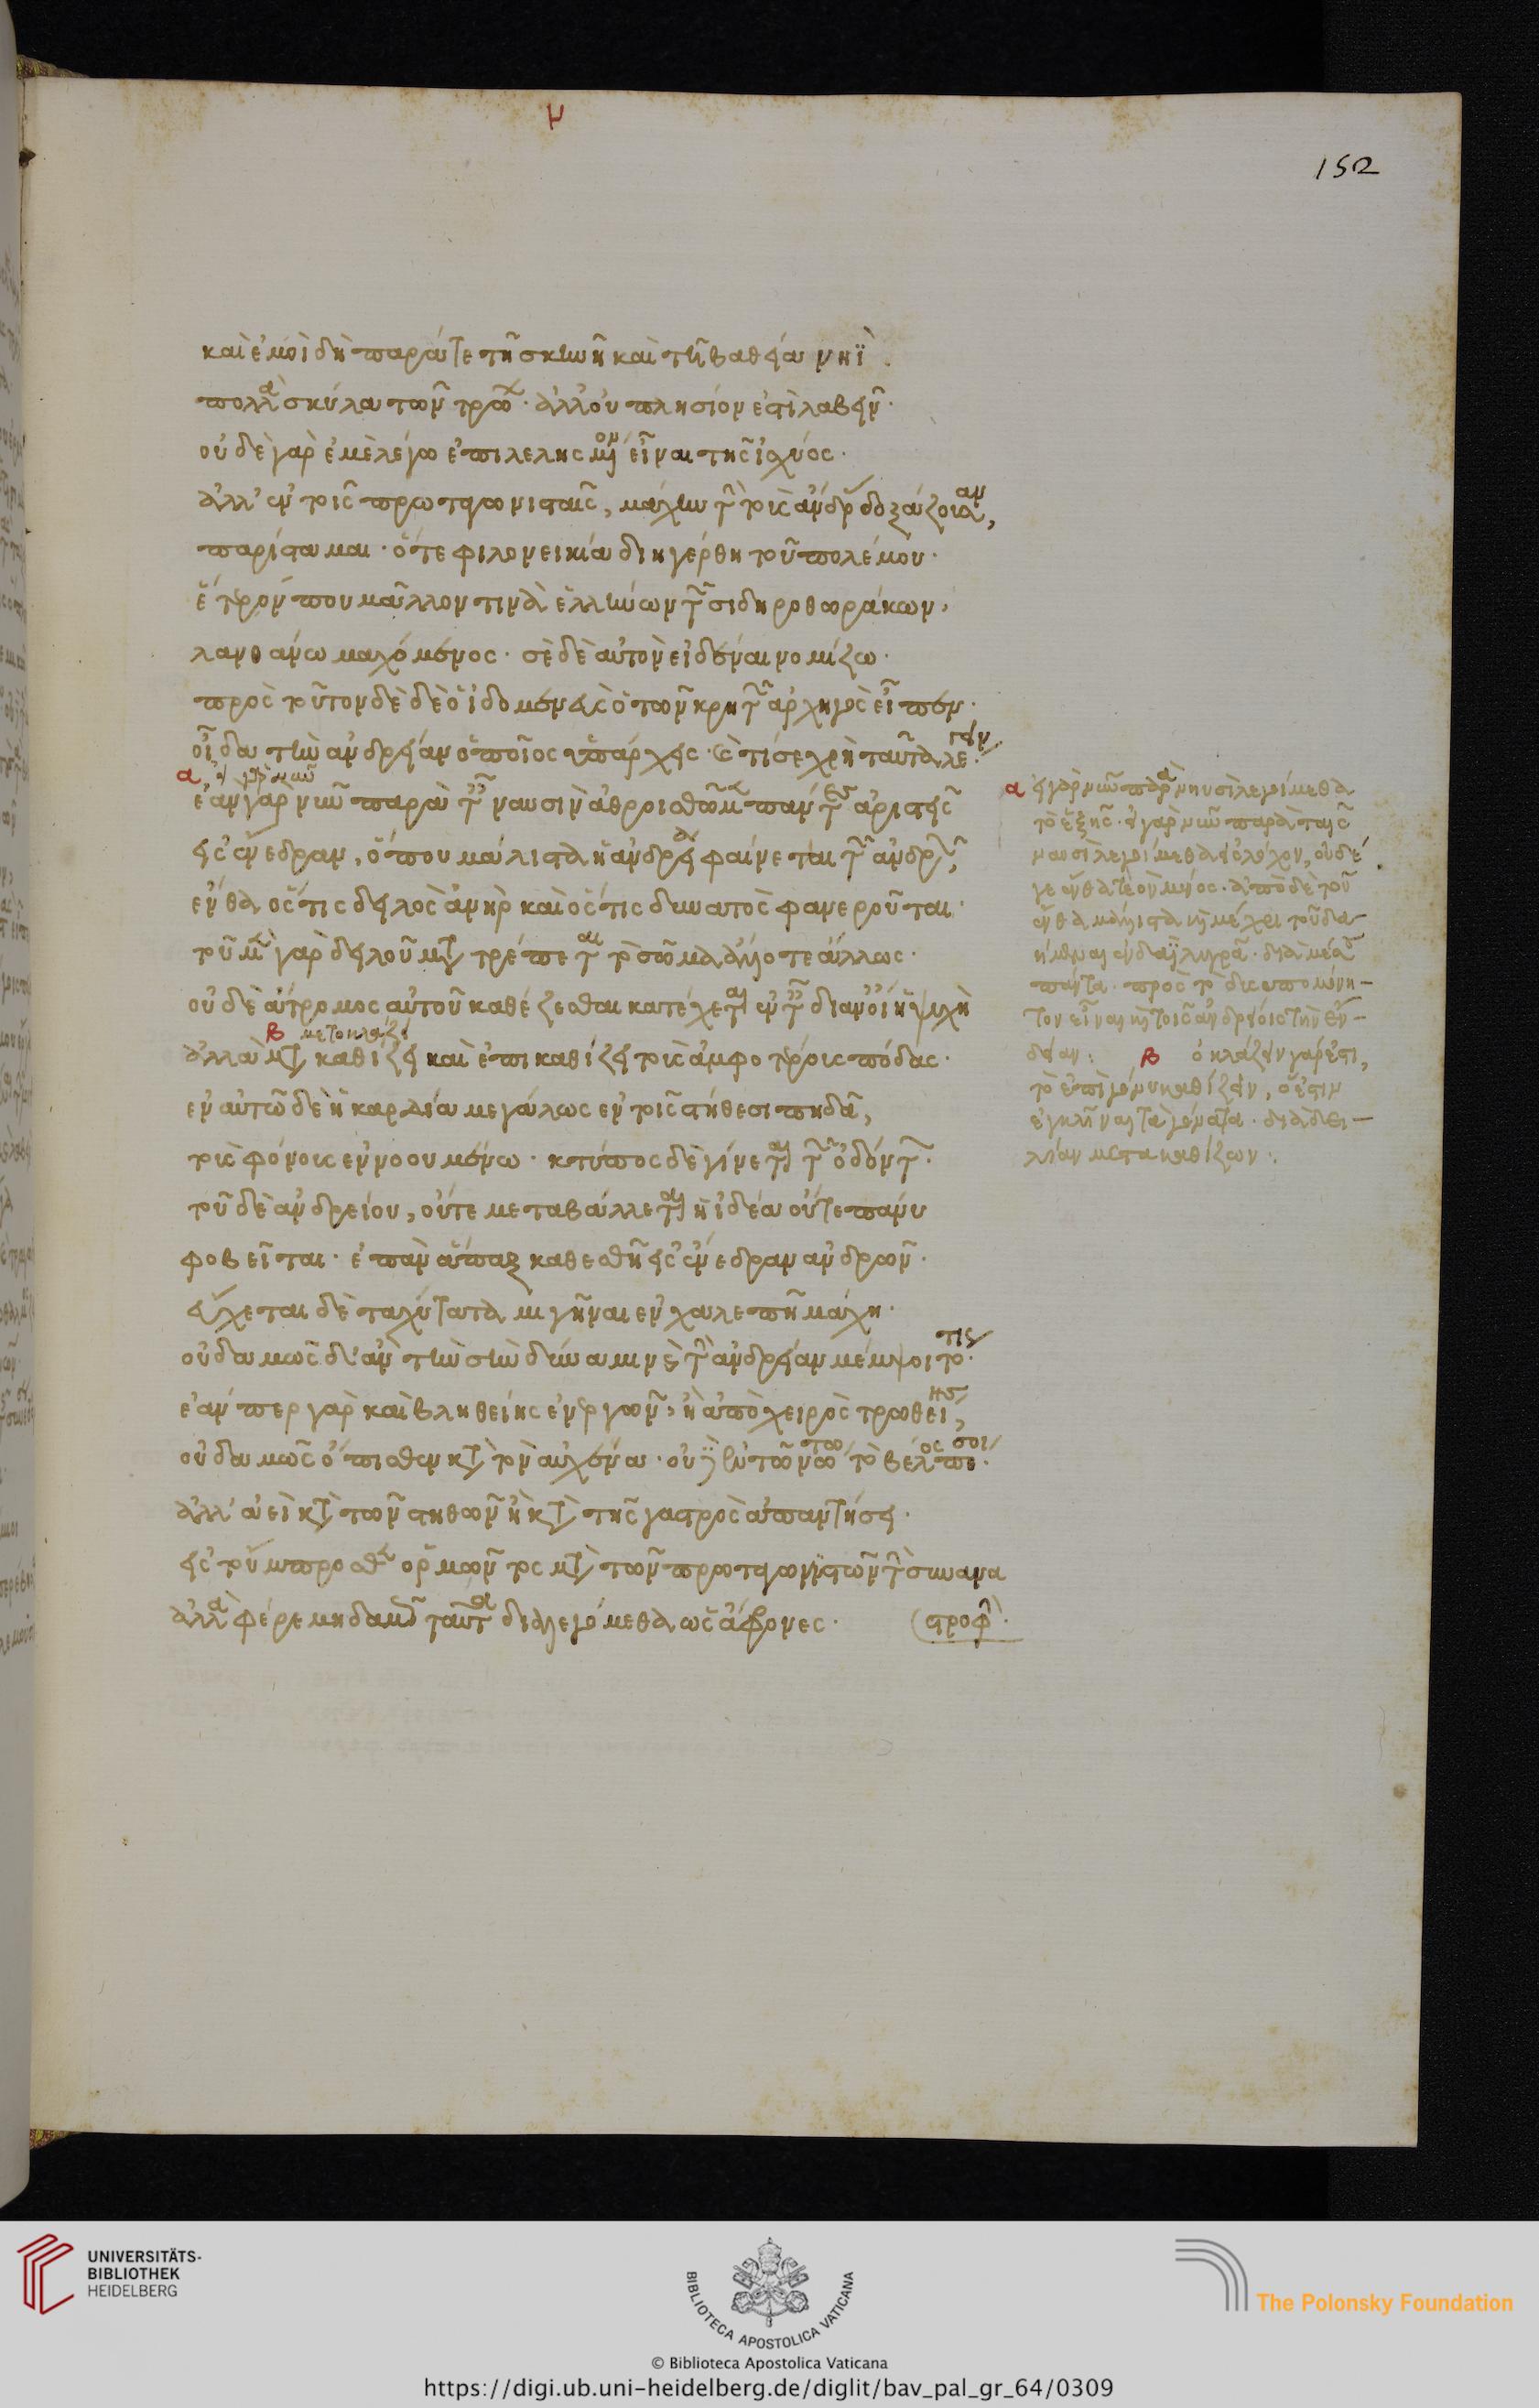 152
καὶ ἐμοὶ δὴ παρά τε τῆ σκηνῆ καὶ τῆ βαθεία νηῒ.
πολλὰ σκύλα τῶν τρώων. ἀλλ' οὐ πλησίον ἐστὶ λαβεῖν.
οὐδὲ γὰρ ἐμὲ λέγω ἐπιλελησμένον εἶναι τῆς ἰσχύος.
ἀλλ' ἐν τοῖς πρωταγωνισταῖς, μάχην τὴν τοὺς ἄνδρας δοξάζουσαν,
παρίσταμαι. ὅτε φιλονεικία διηγέρθη τοῦ πολέμου.
ἕτερόν που μᾶλλον τινὰ ἑλλήνων τῶν σιδηροθωράκων,
λανθάνω μαχόμενος. σὲ δὲ αὐτὸν εἰδέναι νομίζω.
πρὸς τοῦτον δὲ δὲ ὁ ἰδομενεὺς ὁ τῶν κρητῶν ἀρχηγὸς εἶπεν.
οἶδα τὴν ἀνδρείαν ὁποῖος ὑπάρχεις. τί σε χρὴ ταῦτα λέγειν.
α
ἐὰν γὰρ νῦν παρὰ ταῖς ναυσὶν ἀθροισθῶμεν πάντες οἱ ἄριστοι
εἰς ἐνέδραν, ὅπου μάλιστα ἡ ἀνδρεία φαίνεται τῶν ἀνδρῶν,
ἔνθα ὅστις δειλὸς ἀνὴρ καὶ ὅστις δυνατὸς φανεροῦται.
τοῦ μὲν γὰρ δειλοῦ μετατρέπεται τὸ σῶμα ἄλλοτε ἄλλως.
οὐδὲ ἀτρόμος αὐτοῦ καθέζεσθαι κατέχεται ἐν ταῖς διανοίαις ἡ ψυχὴ
β μετοκλάζει
ἀλλὰ μετακαθίζει καὶ ἐπικαθίζει τοὺς ἀμφοτέρους πόδας.
ἐν αὐτῶ δὲ ἡ καρδία μεγάλως ἐν τοῖς στήθεσι πηδᾶ,
τοὺς φόνους ἐννοουμένω. κτύπος δὲ γίνεται τῶν ὀδόντων.
τοῦ δὲ ἀνδρείου, οὔτε μεταβάλλεται ἡ ἰδέα οὔτε πάνυ
φοβεῖται. ἐπὰν ἅπαξ καθεσθῆ εἰς ἐνέδραν ἀνδρῶν.
εὔχεται δὲ ταχύτατα μιγῆναι ἐν χαλεπῆ μάχη.
οὐδαμῶς δ' ἂν τὴν σὴν δύναμιν καὶ τὴν ἀνδρείαν μέμψοιτό τις.
ἐάνπερ γὰρ καὶ βληθείης ἐνεργῶν, ἢ ἀπὸ χειρὸς τρωθείης,
οὐδαμῶς ὄπισθεν κατὰ τὸν αὐχένα. οὐδὲ ἐν τῶ νώτω τὸ βέλος πέσοι.
ἀλλ' ἀεὶ κατὰ τῶν στηθῶν ἢ κατὰ τῆς γαστρὸς ἀπαντήσει.
εἰς τοὔμπροσθεν ὁρμῶντος μετὰ τῶν πρωταγωνιστῶν τὴν συνανα
ἀλλὰ φέρε μηδαμῶς ταῦτα διαλεγώμεθα ὡς ἄφρονες. (στροφήν.
α εἰ γὰρ νῦν παρὰ νηυσὶ λεγοίμεθα
τὸ ἑξῆς. εἰ γὰρ νῦν παρὰ ταῖς
ναυσὶ λεγοίμεθα εἰς λόχον, οὐδέ
κεν ἔνθα τεὸν μένος. ἀπὸ δὲ τοῦ
ἔνθα μάλιστα καὶ μέχρι τοῦ δα-
ήμεναι ἐν δαῒ λυγρᾶ. διὰ μέσου
πάντα. πρὸς τὸ δι-
τον εἶναι καὶ τοῖς ἀνδρείοις τὴν ἐν-
έδραν: β ὀκλάζειν γάρ ἐστι,
τὸ ἐπὶ γόνυ καθίζειν, ὅ ἐστιν
ἐγκλῖναι τὰ γόνατα. διὰ δει-
λίαν μετακαθίζων:
UNIVERSITÄTS-
BIBLIOTHEK
HEIDELBERG
BIBLIOTECA APOSTOLICA VATICANA
The Polonsky Foundation
© Biblioteca Apostolica Vaticana
https://digi.ub.uni-heidelberg.de/diglit/bav_pal_gr_64/0309